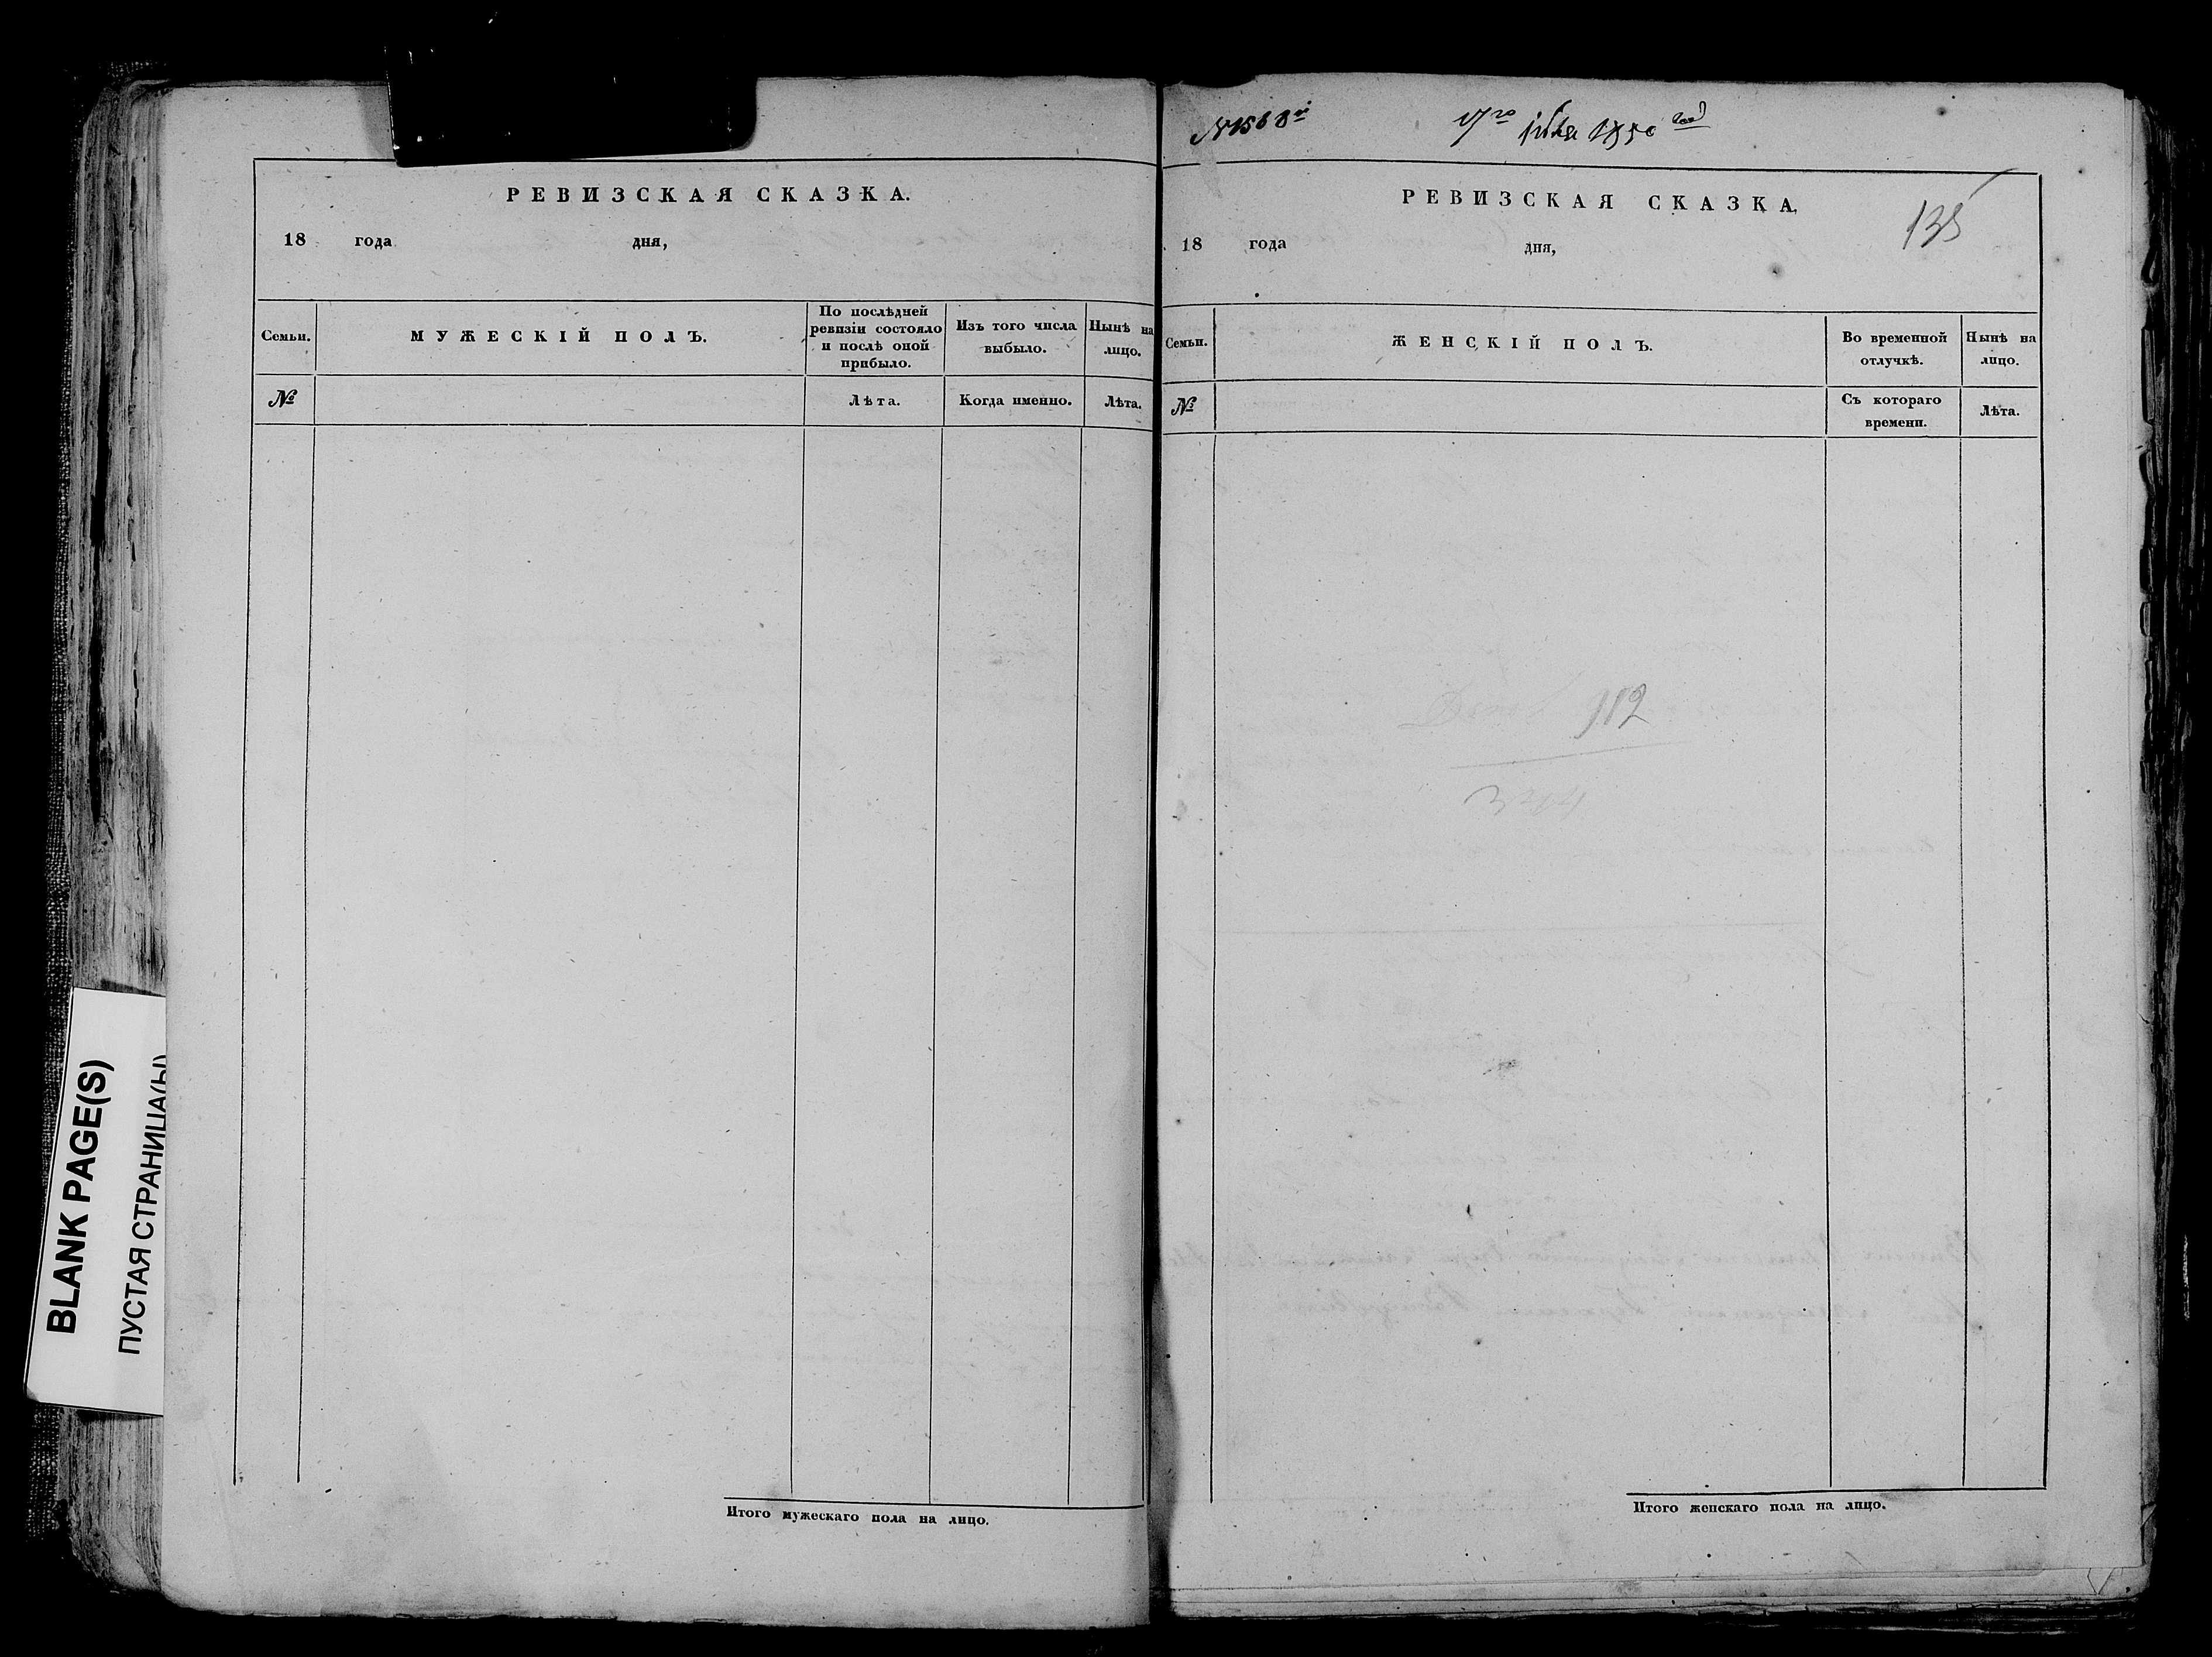 РЕВИЗСКАЯ СКАЗКА.
18 года дня,
Семьи.
МУЖЕСКІЙ ПОЛЪ.
По послѣдней
ревизіи состояло
и послѣ оной
прибыло.
Изъ того числа
выбыло.
Нынѣ на
лицо.
№
Лѣта.
Когда именно.
Лѣта.
Итого мужескаго пола на лицо.
BLANK PAGE(S)
ПУСТАЯ СТРАНИЦА(Ы)
1850
РЕВИЗСКАЯ СКАЗКА.
135
18 года дня,
Семьи.
ЖЕНСКІЙ ПОЛЪ.
Во временной
отлучкѣ.
Нынѣ на
лицо.
№
Съ котораго
времени.
Лѣта.
112
Итого женскаго пола на лицо.